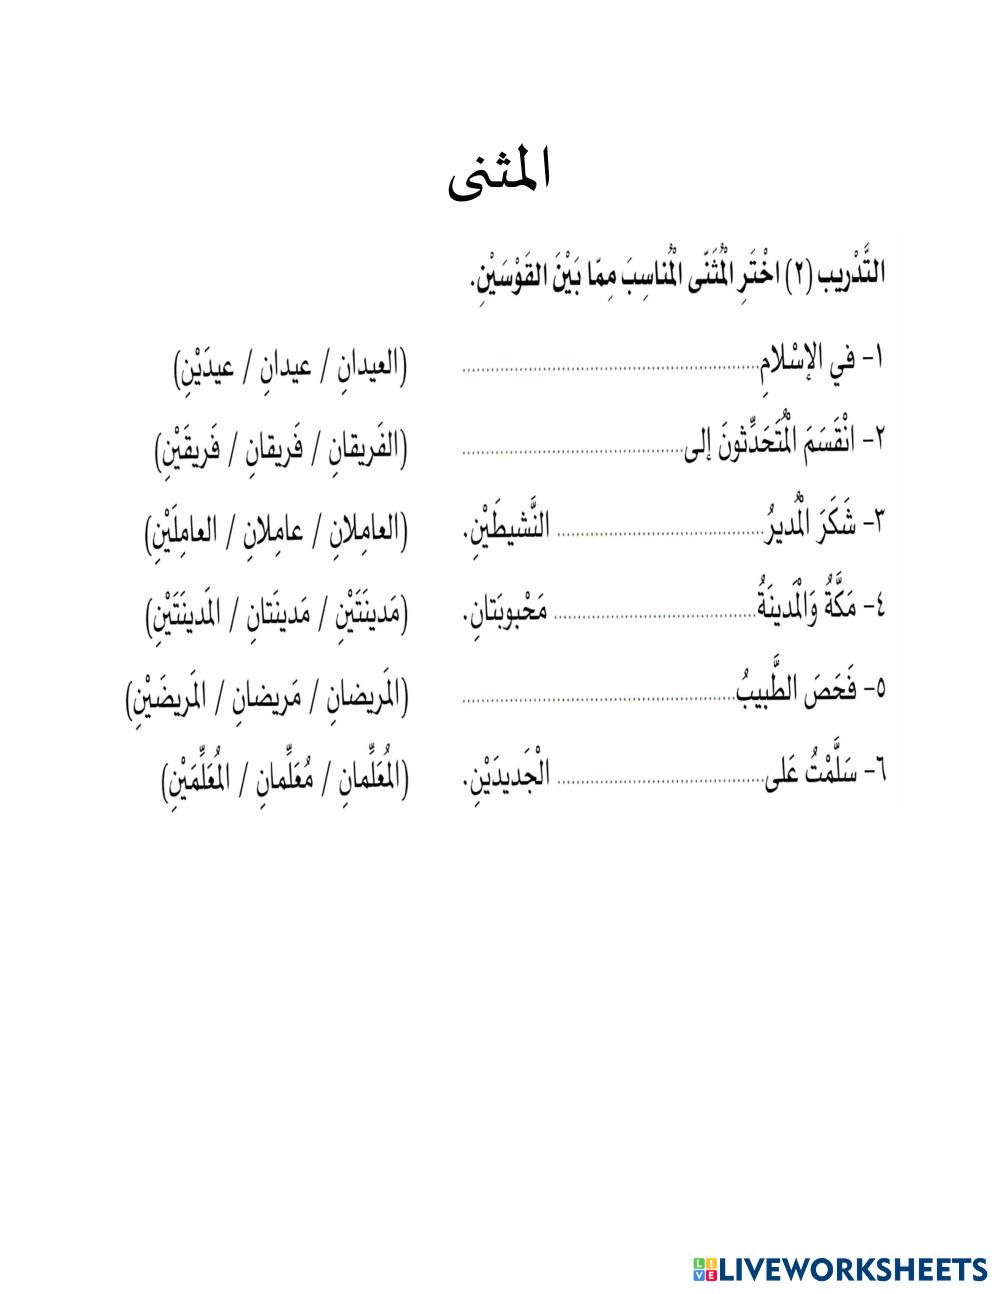 المثنى
التَّدْريب (٢) اخْتَرِ الْمُثَنّى الْمُناسِبَ مِمّا بَيْنَ القَوْسَيْنِ.
١- في الإسْلامِ........................................ (العيدانِ / عيدانِ / عيدَيْنِ)
٢- انْقَسَمَ الْمُتَحَدِّثونَ إلى........................................ (الفَريقانِ / فَريقانِ / فَريقَيْنِ)
٣- شَكَرَ الْمُديرُ........................................ النَّشيطَيْنِ. (العامِلانِ / عامِلانِ / العامِلَيْنِ)
٤- مَكَّةُ وَالْمَدينَةُ........................................ مَحْبوبَتانِ. (مَدينَتَيْنِ / مَدينَتانِ / المَدينَتَيْنِ)
٥- فَحَصَ الطَّبيبُ........................................ (المَريضانِ / مَريضانِ / المَريضَيْنِ)
٦- سَلَّمْتُ عَلى........................................ الْجَديدَيْنِ. (المُعَلِّمانِ / مُعَلِّمانِ / المُعَلِّمَيْنِ)
LIVEWORKSHEETS